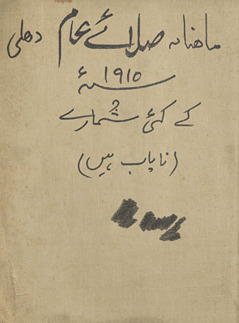 ماهنامہ صلائے عام دهلی
۱۹۱۵ سنہء
کے کئی شمارے
(نایاب ہیں)